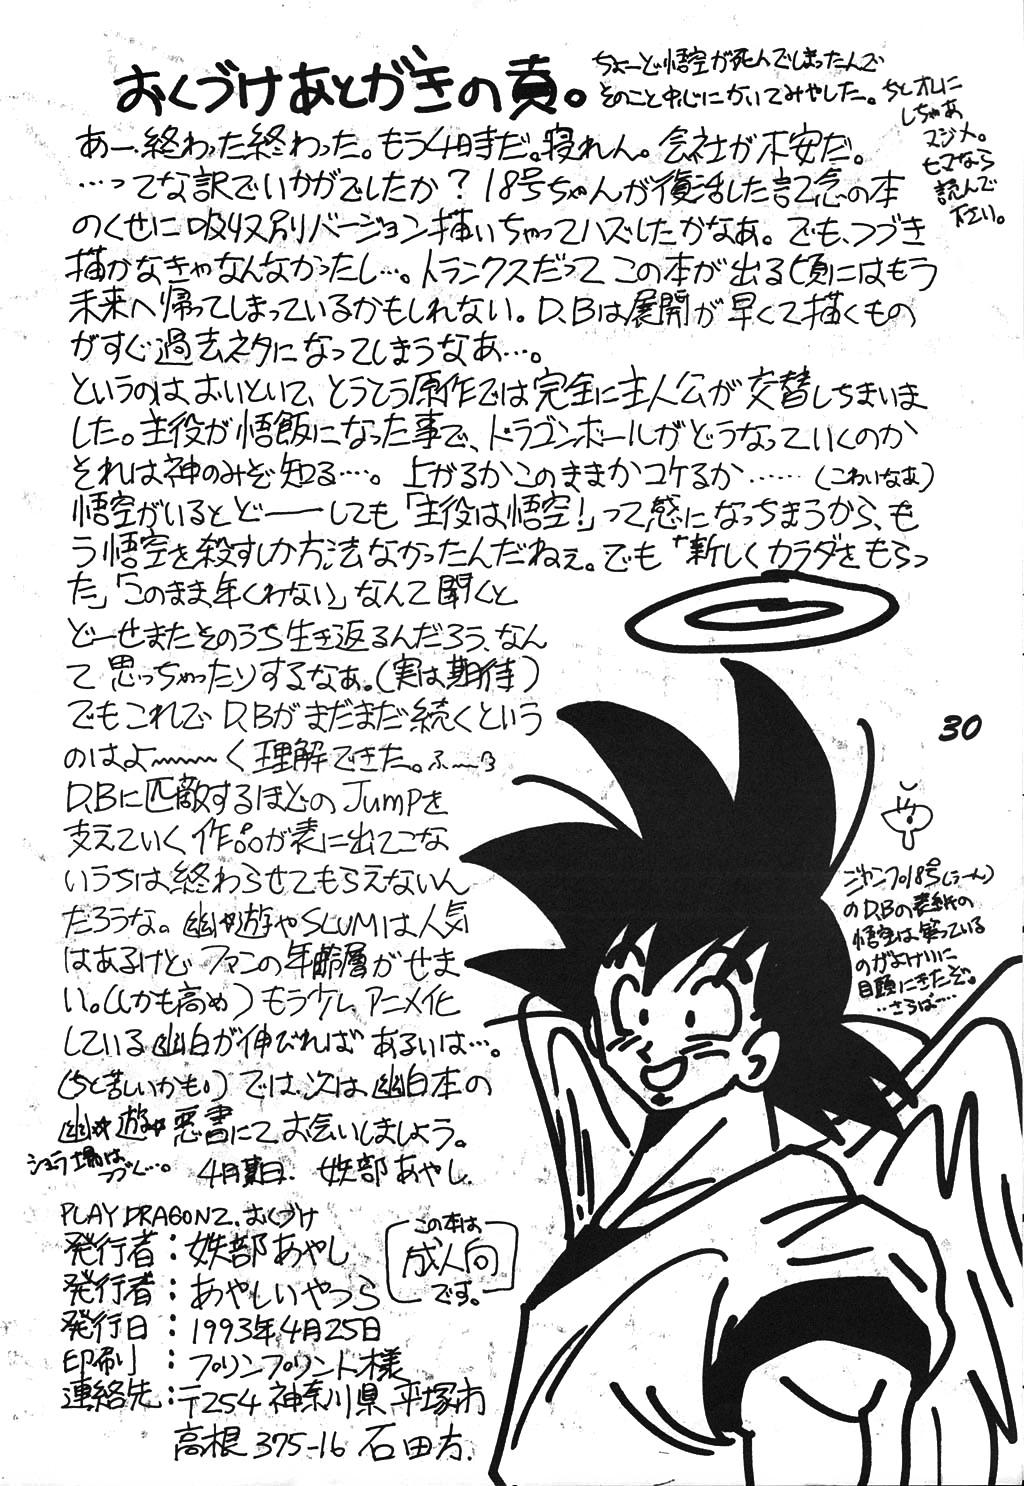 おくづけあとがきの頁。
ちょーど悟空が死んでしまったんで
そのこと中心にかいてみやした。ちとオレに
しちゃあ
マジメ。
ヒマなら
読んで
下さい。
あー、終わった終わった。もう4時だ。寝れん。会社が不安だ。
…ってな訳でいかがでしたか？18号ちゃんが復活した記念の本
のくせに吸収別バージョン描いちゃってハズしたかなあ。でも、つづき
描かなきゃなんなかったし…。トランクスだってこの本が出る頃にはもう
未来へ帰ってしまっているかもしれない。D.Bは展開が早くて描くもの
がすぐ過去ネタになってしまうなあ…。
というのはおいといて、とうとう原作では完全に主人公が交替しちまいま
した。主役が悟飯になった事で、ドラゴンボールがどうなっていくのか
それは神のみぞ知る…。上がるかこのままかコケるか……（こわいなあ）
悟空がいるとどーーしても「主役は悟空！」って感になっちまうから、も
う悟空を殺すしか方法なかったんだねぇ。でも「新しくカラダをもらっ
た」「このまま年くわない」なんて聞くと
どーせまたそのうち生き返るんだろう、なん
て思っちゃったりするなぁ。（実は期待）
でもこれでD.Bがまだまだ続くという
のはよ〜〜く理解できた。ふーぅ
D.Bに匹敵するほどのJUMPを
支えていく作品が表に出てこな
いうちは終わらせてもらえないん
だろうな。幽☆遊やSLUMは人気
はあるけど、ファンの年齢層がせま
い。（しかも高め）もうケレアニメ化
している幽白が伸びればあるいは…。
（ちと苦しいかも。）では、次は幽白本の
幽☆遊☆悪書にてお会いしましょう。
シュラ場は
つづく…。
4月 日. 妖部あやし.
30
ジャンプ18号（うーん）
のD.Bの表紙の
悟空は笑っている
のがよけいに
目頭にきたぞ。
…さらば…
PLAY DRAGON2. おくづけ
発行者：妖部あやし
発行者：あやしいやつら
発行日：1993年4月25日
印刷：プリンプリント様
連絡先：〒254 神奈川県平塚市
高根375-16 石田方.
この本は
成人向
です。